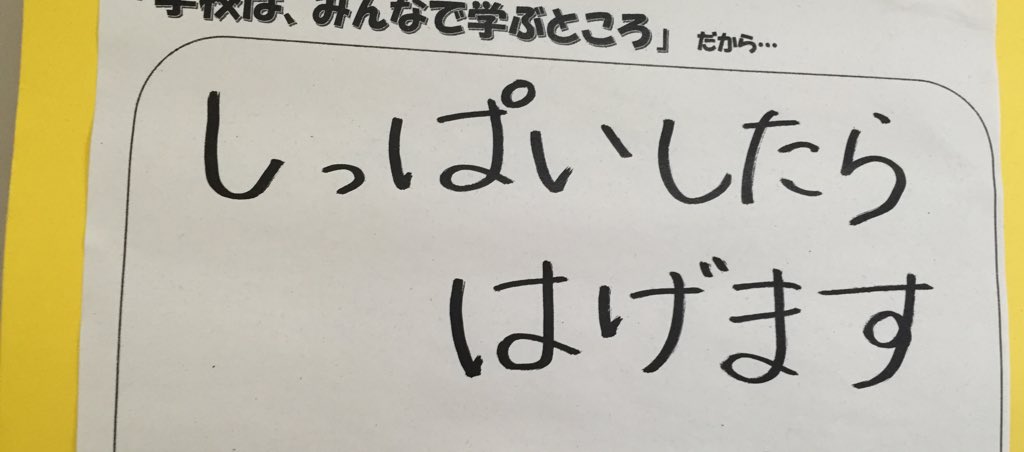 「学校は、みんなで学ぶところ」 だから…
しっぱいしたら
はげます